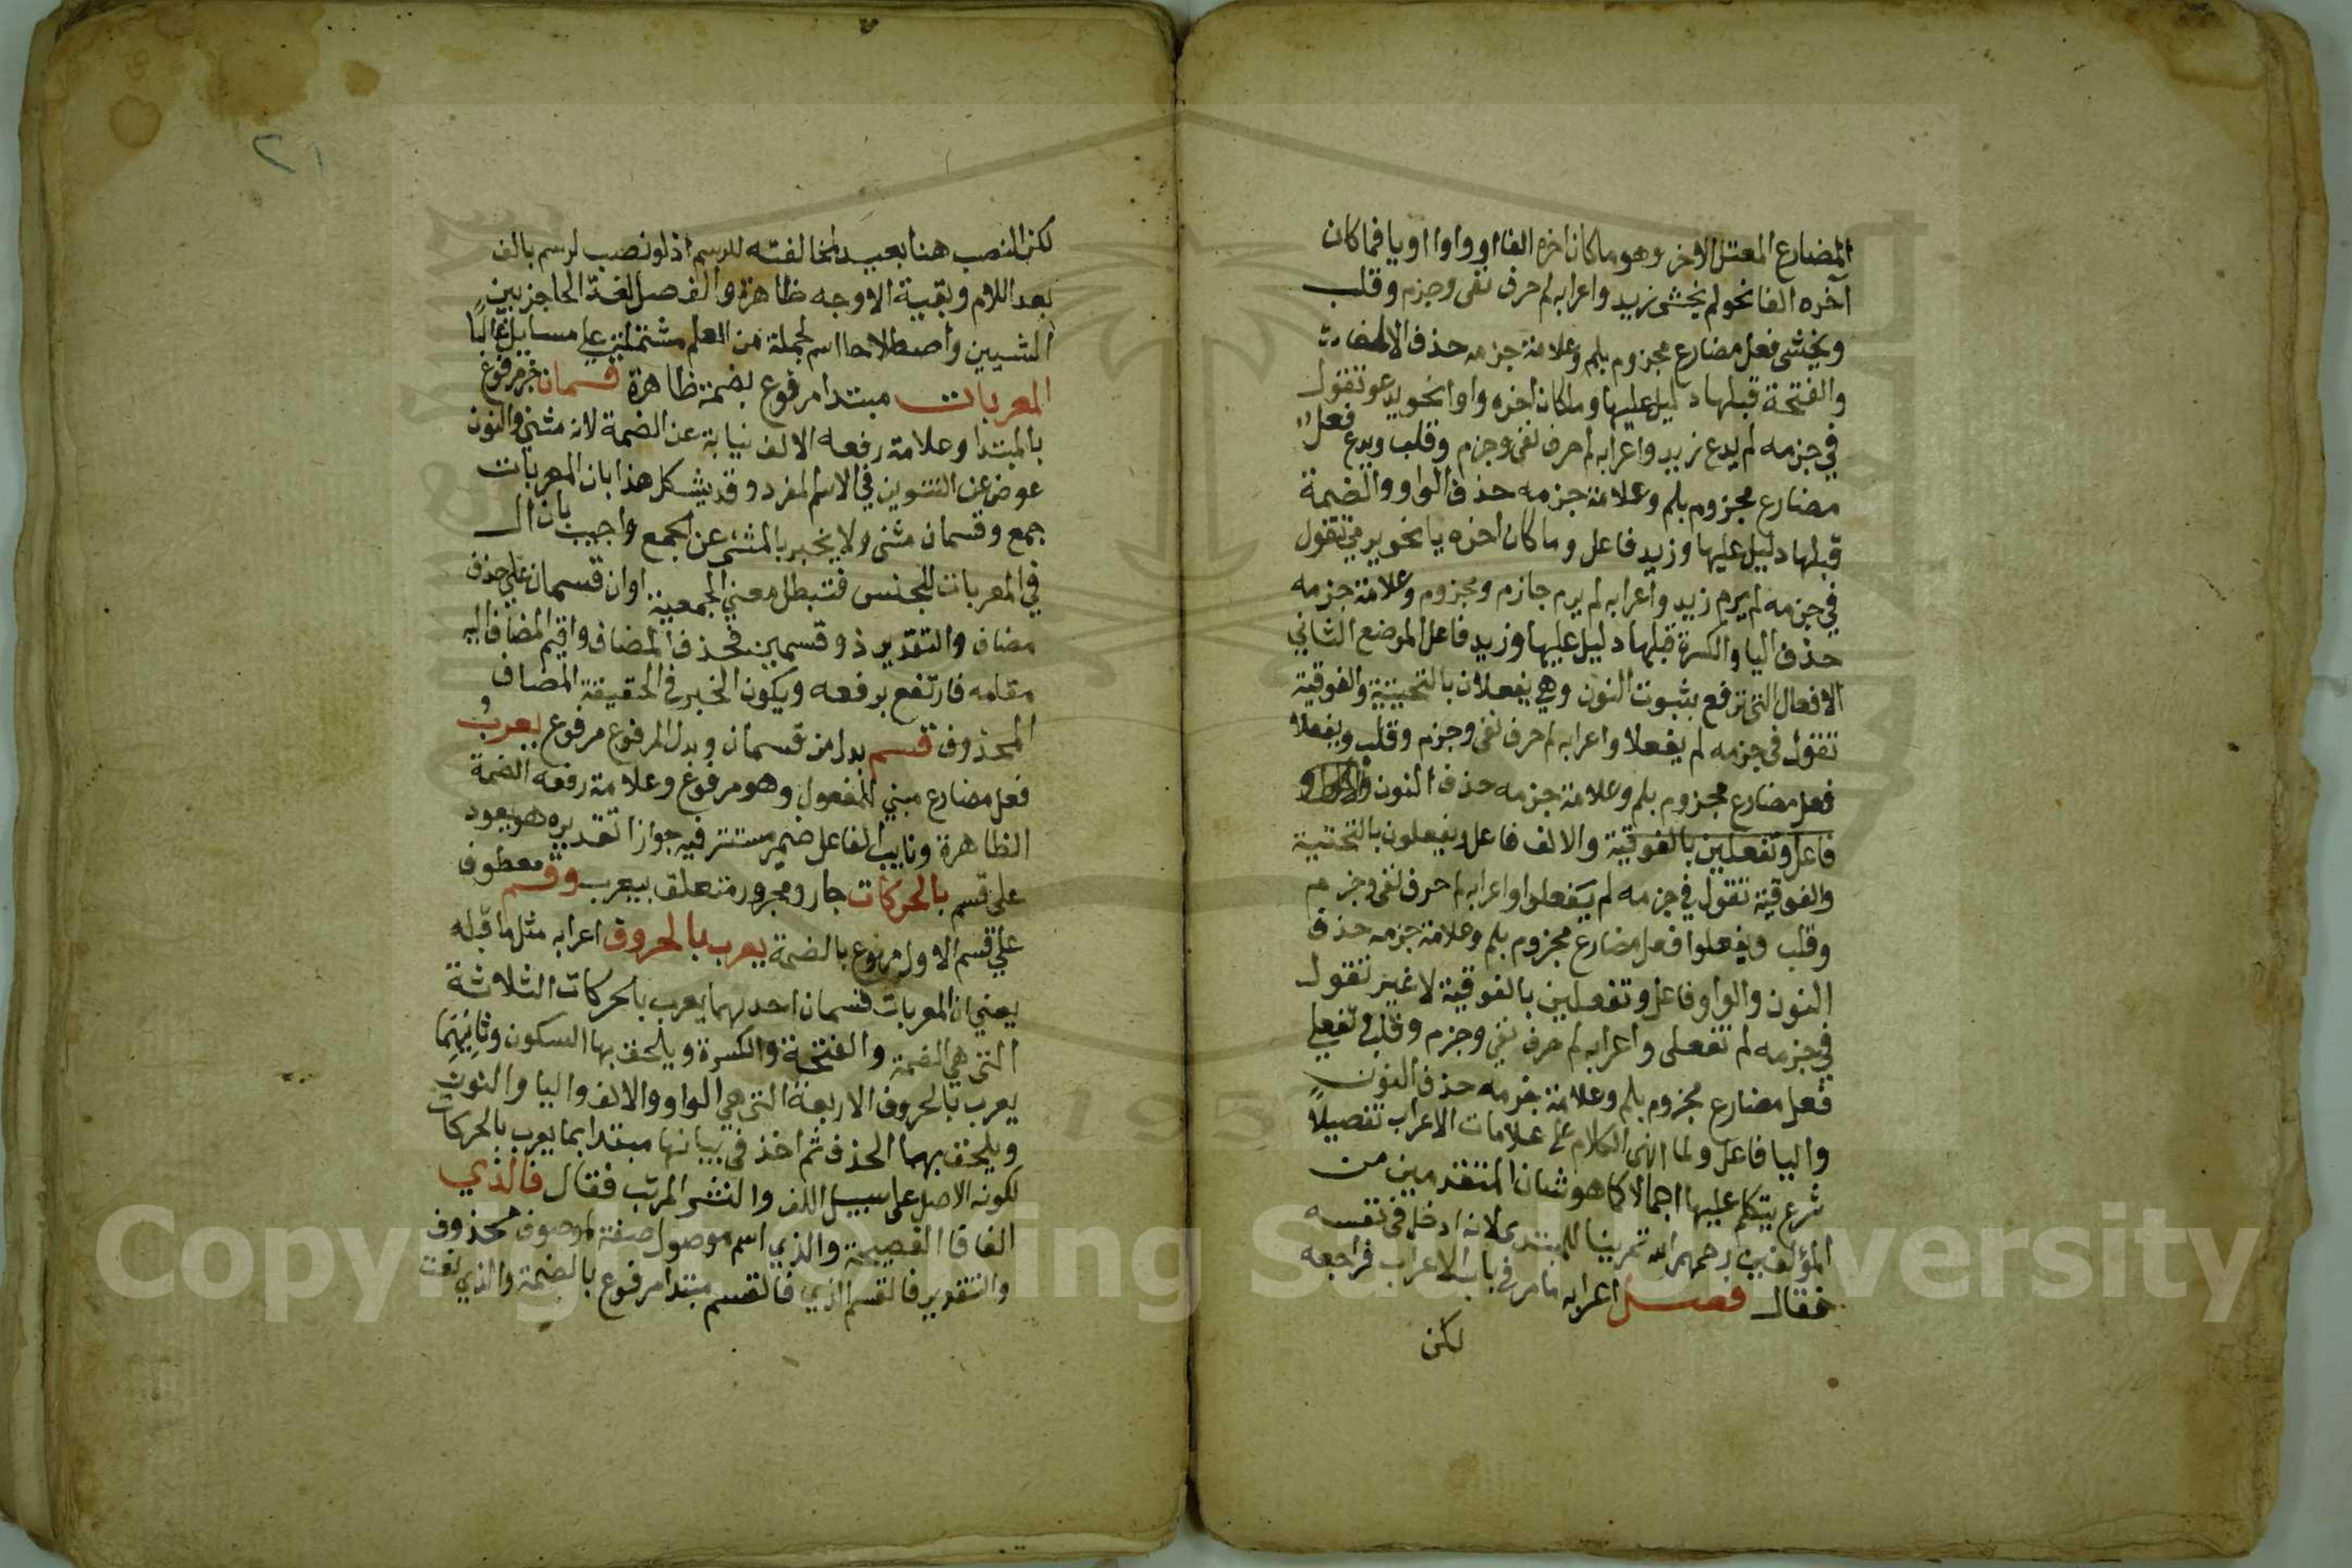 المضارع المعتل الاخر وهو ما كان اخره الفا او واوا او يا فما كان
آخره الفا نحو لم يخشى زيد واعرابه لم حرف نفى وجزم وقلب
ويخشى فعل مضارع مجزوم بلم وعلامة جزمه حذف الالف
والفتحة قبلها دليل عليها وما كان اخره واوا نحو يدعو تقول
في جزمه لم يدع زيد واعرابه لم حرف نفى وجزم وقلب ويدع فعل
مضارع مجزوم بلم وعلامة جزمه حذف الواو والضمة
قبلها دليل عليها وزيد فاعل وما كان اخره يا نحو يرمي تقول
في جزمه لم يرم زيد واعرابه لم يرم جازم ومجزوم وعلامة جزمه
حذف اليا والكسرة قبلها دليل عليها وزيد فاعل الموضع الثاني
الافعال التي ترفع بثبوت النون وهي يفعلان بالتحتيية والفوقية
تقول في جزمه لم يفعلا واعرابه لم حرف نفى وجزم وقلب ويفعلا
فعل مضارع مجزوم بلم وعلامة جزمه حذف النون
فاعل وتفعلين بالفوقية والالف فاعل ويفعلون بالتحتية
والفوقية تقول في جزمه لم يفعلوا واعرابه لم حرف نفى وجزم
وقلب ويفعلوا فعل مضارع مجزوم بلم وعلامة جزمه حذف
النون والواو فاعل وتفعلين بالفوقية لا غير تقول
في جزمه لم تفعلى واعرابه لم حرف نفي وجزم وقلب وتفعلي
فعل مضارع مجزوم بلم وعلامة جزمه حذف النون
واليا فاعل ولما انهى الكلام على علامات الاعراب تفصيلاً
شرع يتكلم عليها اجمالا كما هو شان المتقدمين من
المؤلفين رحمهم الله تمرينا للمبتدى لانه ادخل في نفسه
فقال فصل اعرابه ما مر في باب الاعراب فراجعه
لكن
٢١
لكن النصب هنا بعيد لمخالفته للرسم اذ لو نصب لرسم بالف
بعد اللام وبقية الاوجه ظاهرة والفصل لغة الحاجز بين
الشيين واصطلاحا اسم لجملة من العلم مشتملة على مسايل غالباً
المعربات مبتدا مرفوع بضمة ظاهرة قسمان خبر مرفوع
بالمبتدا وعلامة رفعه الالف نيابة عن الضمة لانه مثنى والنون
عوض عن التنوين في الاسم المفرد وقد يشكل هذا بان المعربات
جمع وقسمان مثنى ولا يخبر بالمثنى عن الجمع واجيب بان ال
في المعربات للجنس فتبطل معني الجمعية او ان قسمان على حذف
مضاف والتقدير ذو قسمين فحذف المضاف واقيم المضاف اليه
مقامه فارتفع برفعه ويكون الخبر في الحقيقة المضاف
المحذوف قسم بدل من قسمان وبدل المرفوع مرفوع يعربُ
فعل مضارع مبني للمفعول وهو مرفوع وعلامة رفعه الضمة
الظاهرة ونايب الفاعل ضمير مستتر فيه جوازا تقديره هو يعود
على قسم بالحركات جار ومجرور متعلق بيعرب وقسم معطوف
علي قسم الاول مرفوع بالضمة يعرب بالحروف اعرابه مثل ما قبله
يعني ان المعربات قسمان احدهما يعرب بالحركات الثلاثة
التي هي الضمة والفتحة والكسرة ويلحق بها السكون وثانيهما
يعرب بالحروف الاربعة التي هي الواو والالف واليا والنون
ويلحق بهما الحذف ثم اخذ في بيانها مبتدا بما يعرب بالحركات
لكونه الاصل على سبيل اللف والنشر المرتب فقال فالذي
الفا فا الفصيحة والذي اسم موصول صفة لموصوف محذوف
والتقدير فالقسم الذي فالقسم مبتدا مرفوع بالضمة والذي نعت